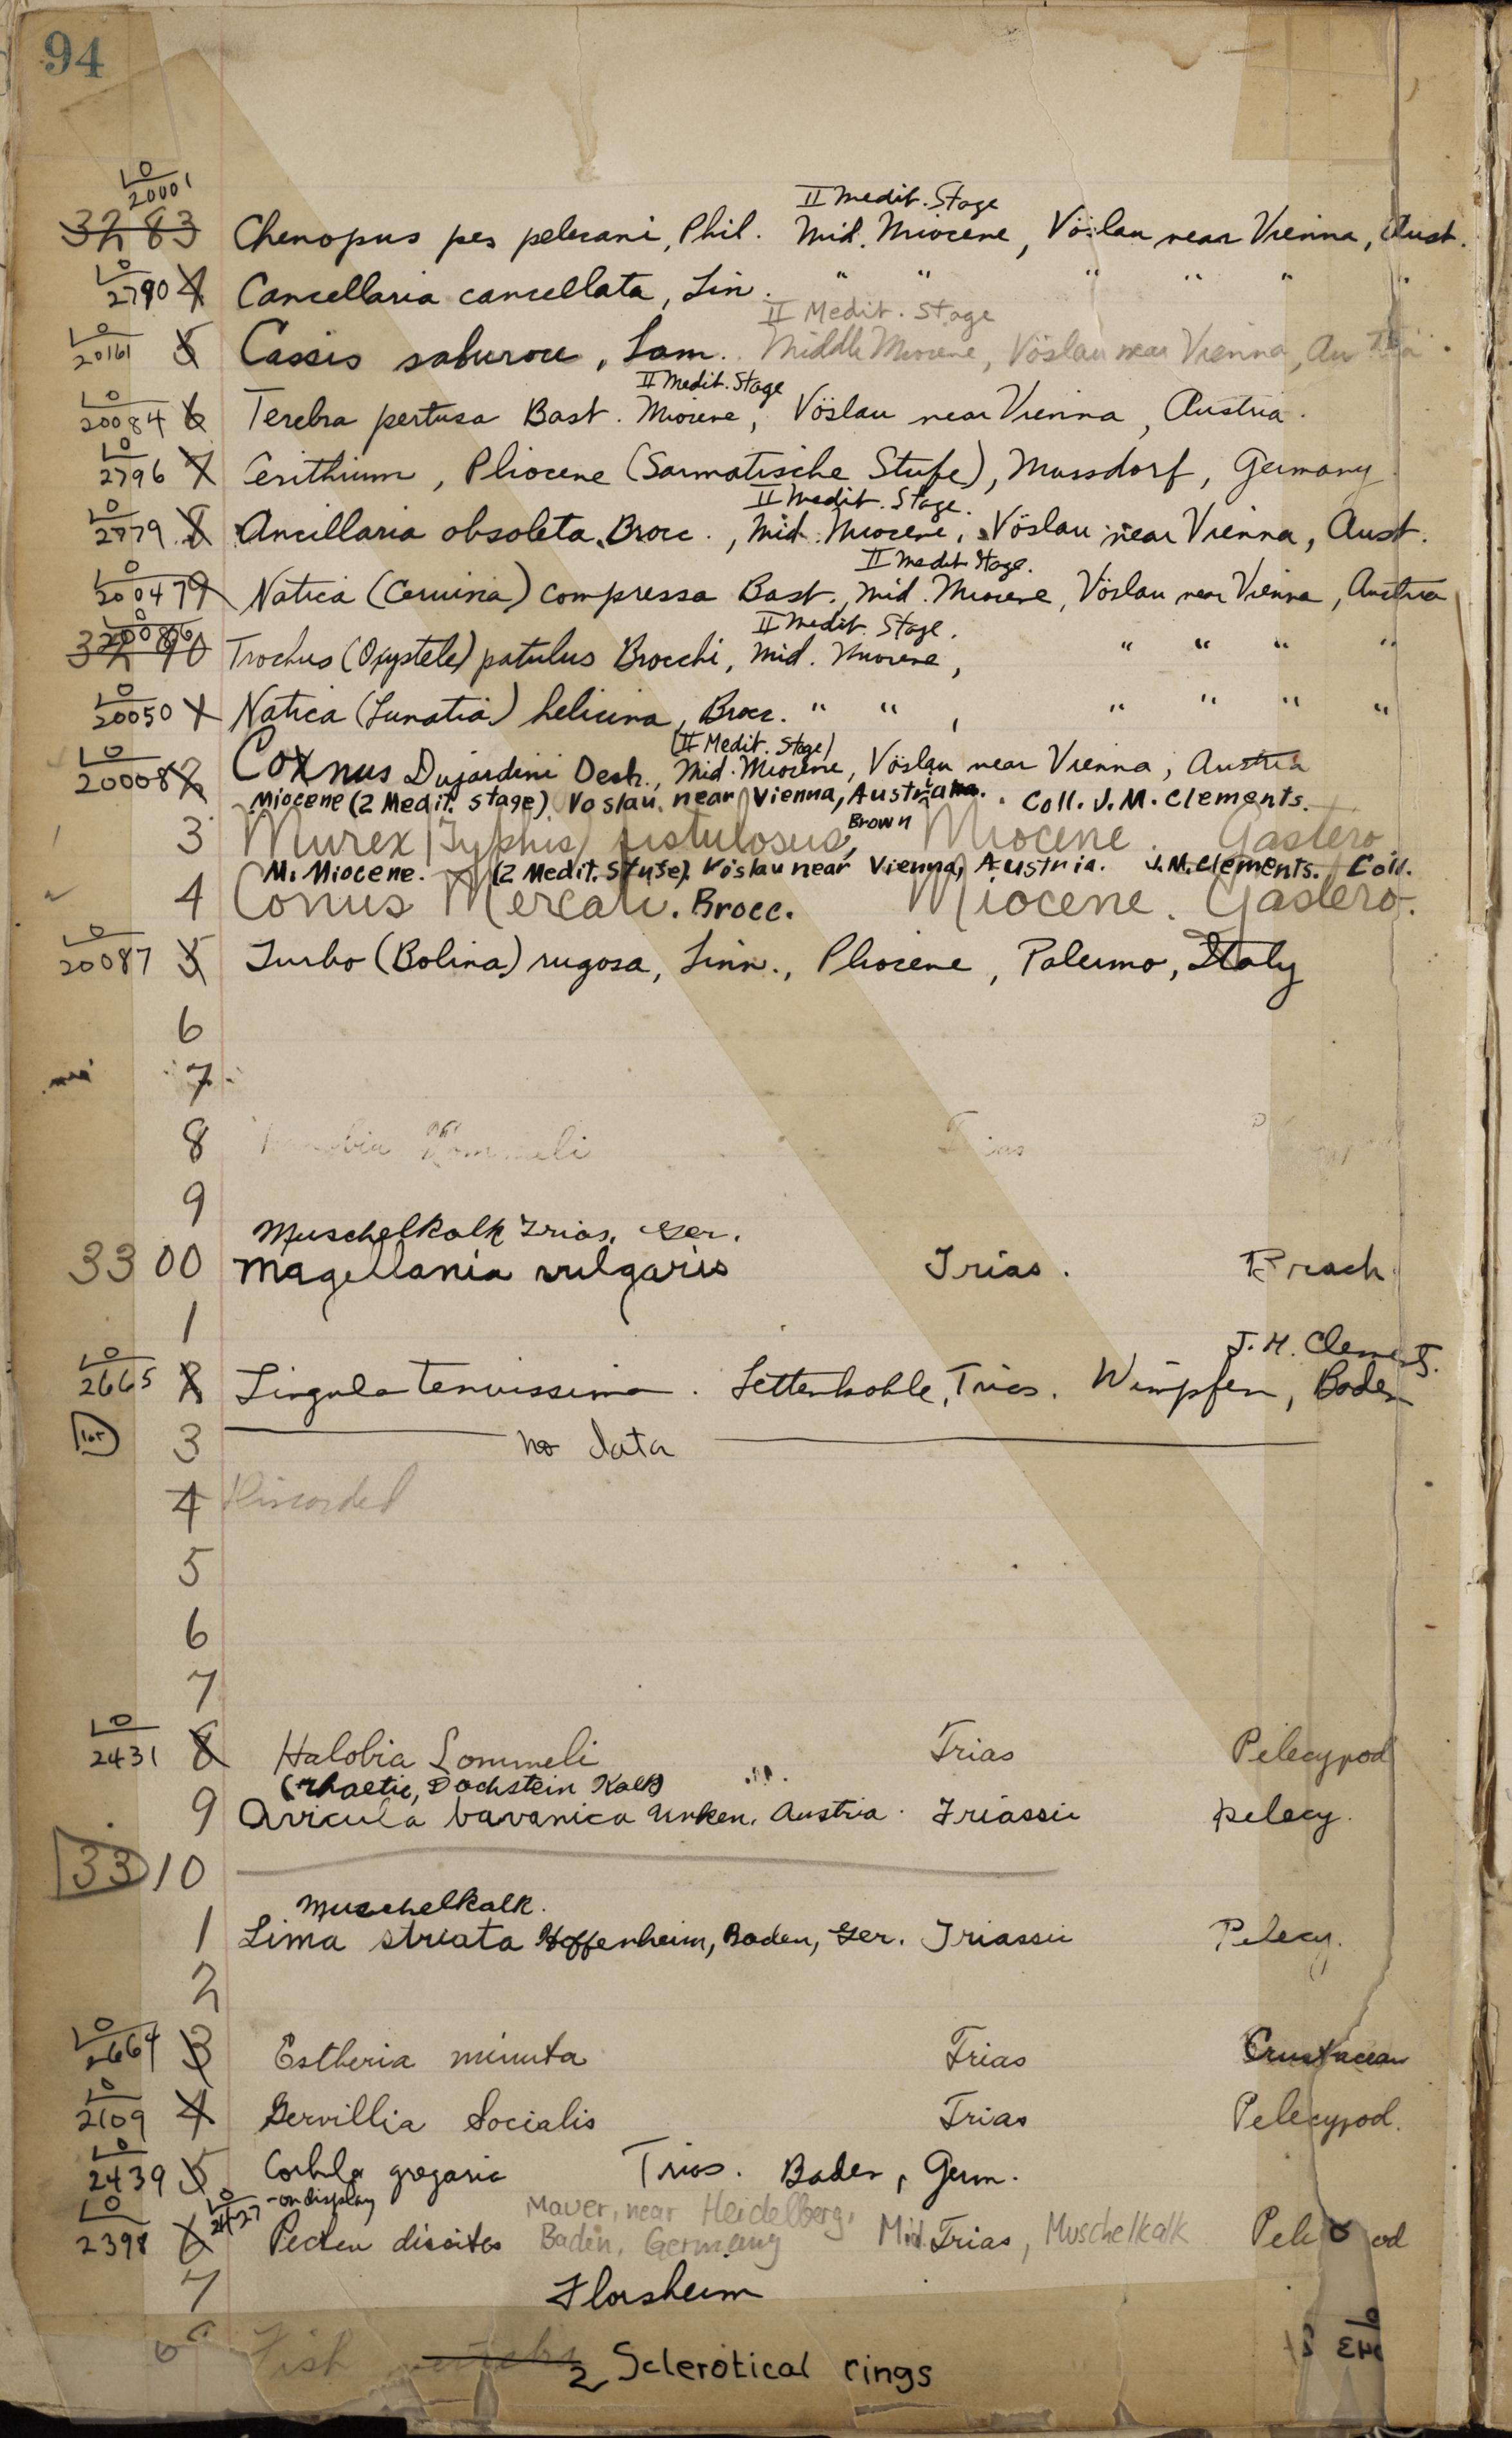 94
LO
20001
II Medit. Stage
3283 Chenopus pes pelecani, Phil. Mid. Miocene, Vöslau near Vienna, Aust.
LO
2790 4 Cancellaria cancellata, Lin. " " " " " "
II Medit. Stage
LO
20161 5 Cassis saburou, Lam. Middle Miocene, Vöslau near Vienna, Au
II Medit. Stage
LO
20084 6 Terebra pertusa Bast. Miocene, Vöslau near Vienna, Austria.
LO
2796 7 Cerithium, Pliocene (Sarmatische Stufe), Mussdorf, Germany
II Medit. Stage.
LO
2779 8 Ancillaria obsoleta, Brocc., Mid. Miocene, Vöslau near Vienna, Aust.
II Medit Stage.
LO
20047 9 Natica (Ceruina) compressa Bast., Mid. Miocene, Vöslau near Vienna, Austria
LO
20086 II Medit. Stage.
3290 Trochus (Oxystele) patulus Brocchi, Mid. Miocene, " " " "
LO
20050 1 Natica (Lunatia) helicina, Brocc. " " , " " " "
(II Medit. Stage)
LO
20008 2 Conus Dujardini Desh., Mid. Miocene, Vöslau near Vienna, Austria
Miocene (2 Medit. stage) Voslau near Vienna, Austria. Coll. J.M. Clements.
3 Murex (Typhis) fistulosus, Brown Miocene. Gastero
M. Miocene. (2 Medit. Stufe). Vöslau near Vienna, Austria. J.M. Clements. Coll.
4 Conus Mercati. Brocc. Miocene. Gastero.
LO
20087 5 Turbo (Bolina) rugosa, Linn., Pliocene, Palermo, Italy
6
7
8 Trias
9
Muschelkalk Trias. Ger.
3300 Magellania vulgaris Trias. Brach.
1
J. M. Clements.
LO
2665 2 Lingula tenuissima. Lettenkohle, Trias. Wimpfen, Baden
lot 3 no data
4 Discarded
5
6
7
LO
2431 8 Halobia Lommeli Trias Pelecypod
(Rhaetic, Dachstein Kalk)
9 Avicula bavanica Unken, Austria. Triassic pelecy.
3310
Muschelkalk.
1 Lima striata Hoffenheim, Baden, Ger. Triassic Pelecy.
2
LO
2664 3 Estheria minuta Trias Crustacean
LO
2109 4 Gervillia Socialis Trias Pelecypod.
LO
2439 5 Corbula gregaria Trias. Baden, Germ.
LO
2427 - on display
Mauer, near Heidelberg,
LO
2398 6 Pecten discites Baden, Germany Mid. Trias, Muschelkalk Pele od
7 Florsheim
Fish 2 Sclerotical rings